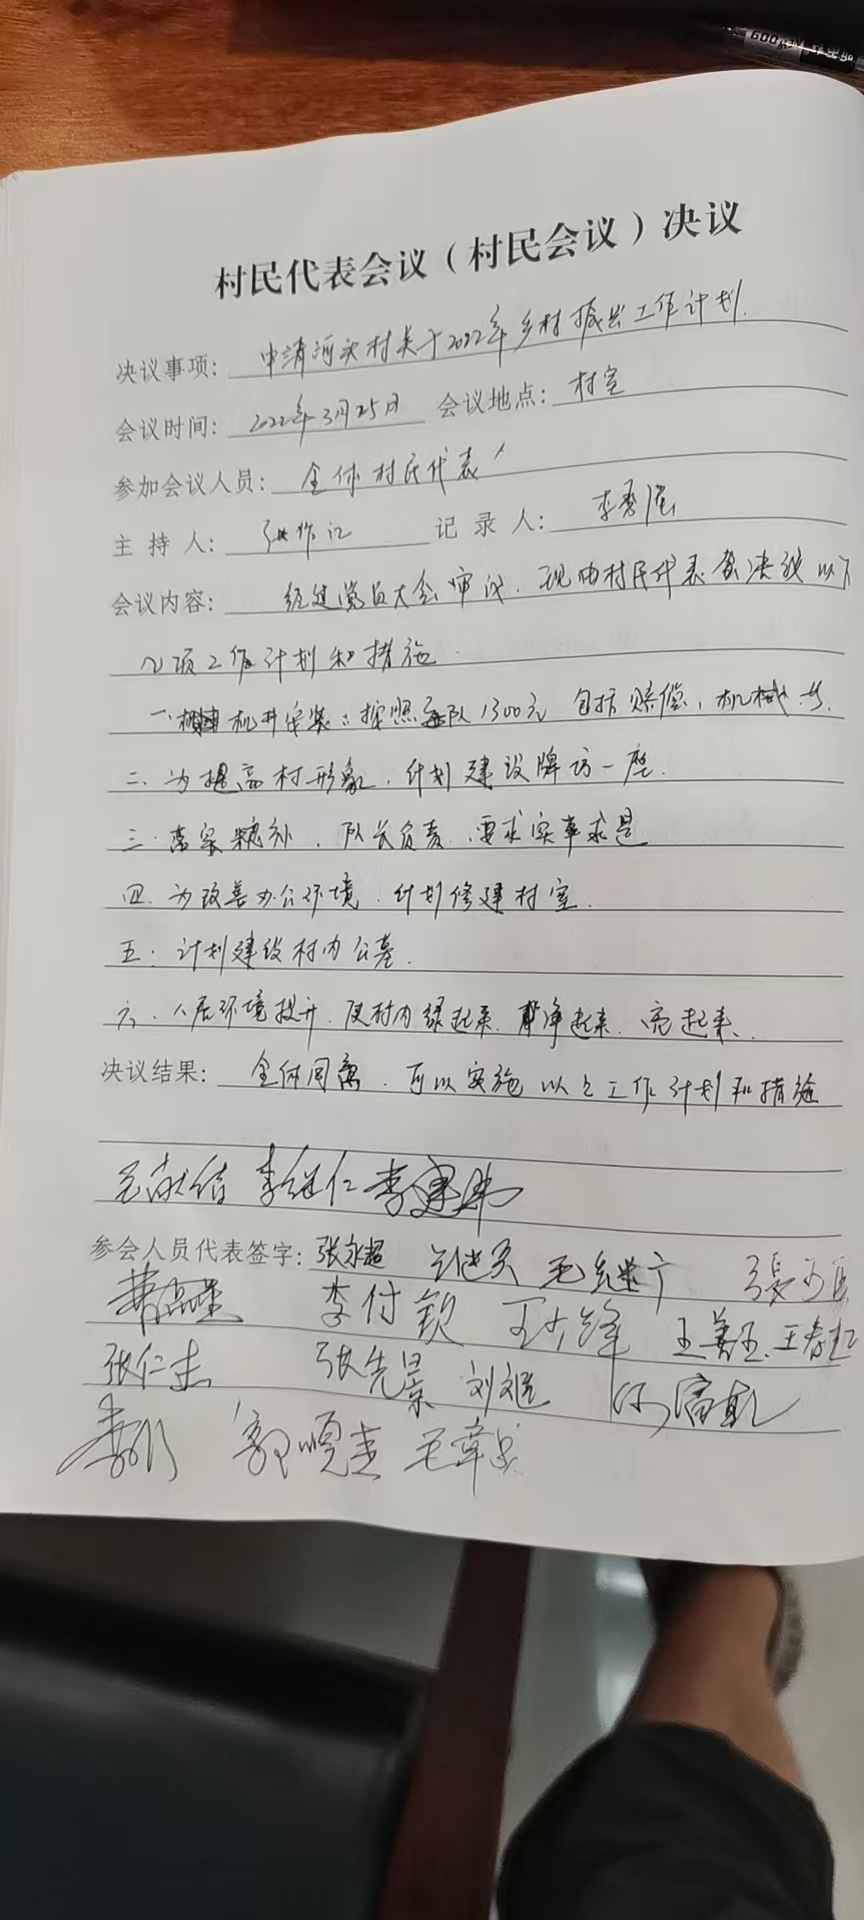 村民代表会议（村民会议）决议
决议事项： 申请河头村关于2022年乡村振兴工作计划.
会议时间： 2022年3月25日 会议地点： 村室
参加会议人员： 全体村民代表
主 持 人： 张 记 录 人： 李
会议内容： 经过党员大会审议，现由村民代表会决议以下
项工作计划和措施.
一. 机井安装：按照每队1300元 包括赔偿，机械.
二、为提高村形象，计划建设牌坊一座.
三. 队长负责，要求实事求是
四. 为改善办公环境，计划修建村室.
五. 计划建设村内公墓.
六、人居环境提升，使村内绿起来，净起来，亮起来.
决议结果： 全体同意，可以实施以上工作计划和措施
李继仁 李建
参会人员代表签字： 张永超 毛 張
李付钦 王 王善玉.王春
张仁志 张先景 刘
郭顺